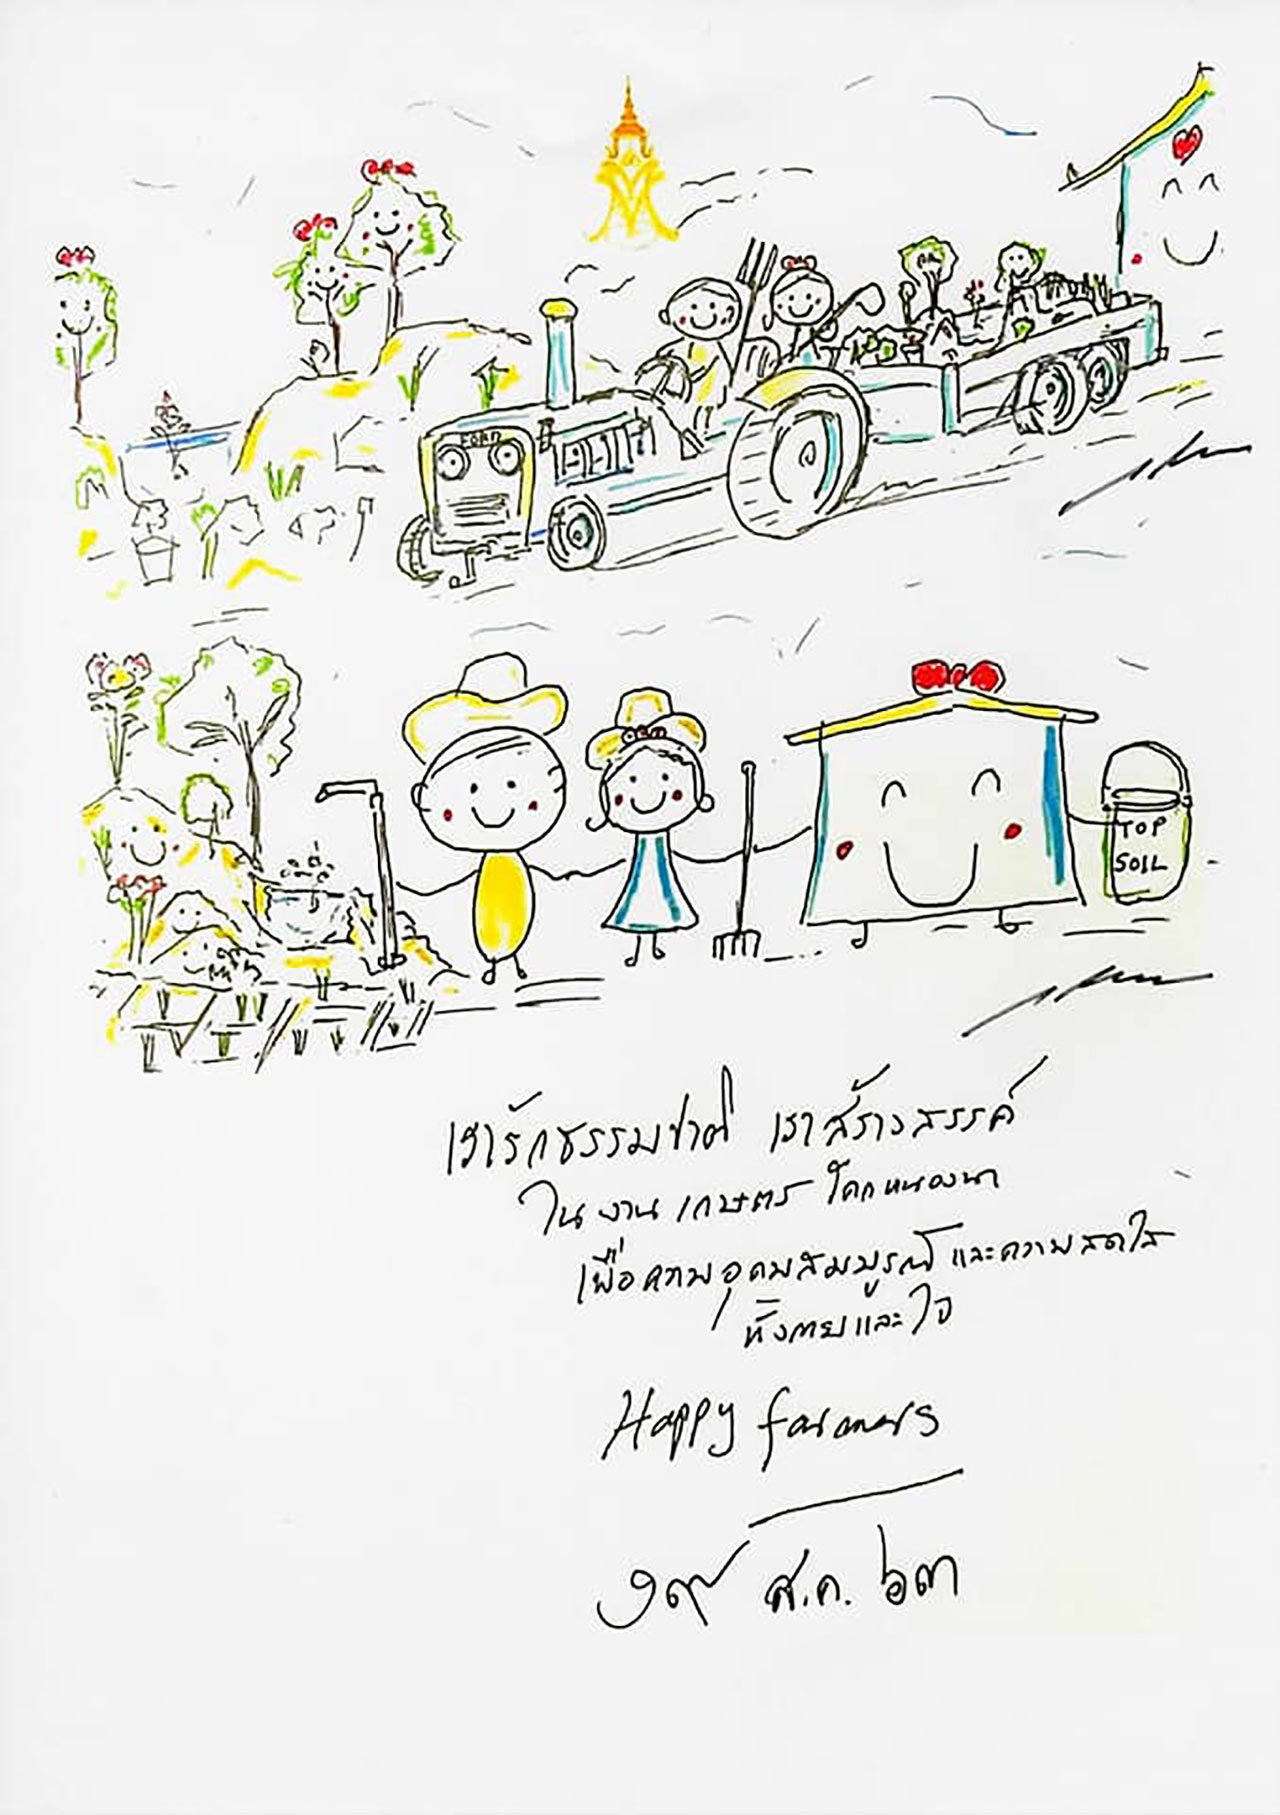 TOP
SOIL
เรารักธรรมชาติ เราสร้างสรรค์
ในงานเกษตร โคกหนองนา
เพื่อความอุดมสมบูรณ์ และความสดใส
ทั้งกายและใจ
Happy farmers
๑๙ ส.ค. ๖๓